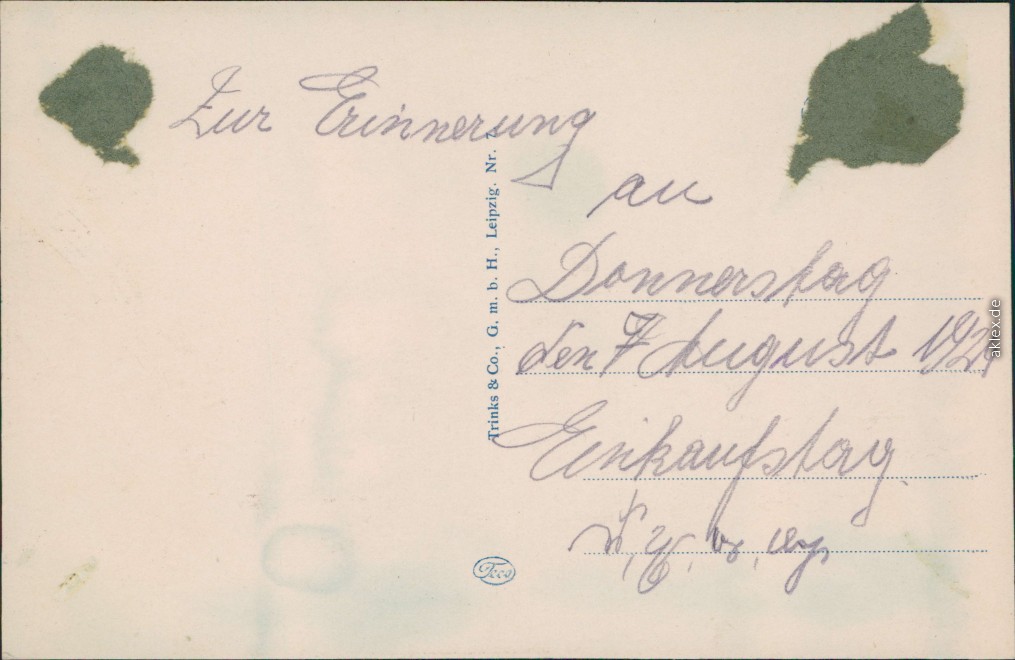 Zur Erinnerung
an
Donnerstag
den 7 August
Einkaufstag
Trinks & Co., G. m. b. H., Leipzig. Nr. 7.
Tco
aklex.de